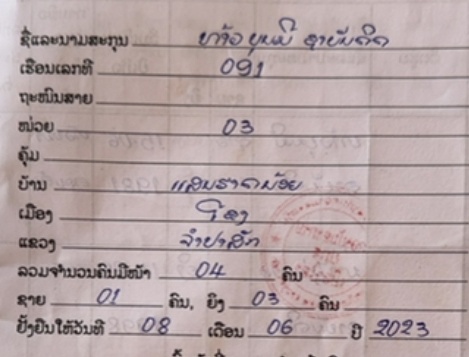 ຊື່ແລະນາມສະກຸນ ທ້າວ ບຸນມີ ຊາຍບັນດິດ
ເຮືອນເລກທີ 091
ຖະໜົນສາຍ
ໜ່ວຍ 03
ຄຸ້ມ
ບ້ານ ແສນຮາດນ້ອຍ
ເມືອງ ໂຂງ
ແຂວງ ຈຳປາສັກ
ລວມຈຳນວນຄົນມີໜ້າ 04 ຄົນ
ຊາຍ 01 ຄົນ, ຍິງ 03 ຄົນ
ຢັ້ງຢືນໃຫ້ວັນທີ 08 ເດືອນ 06 ປີ 2023